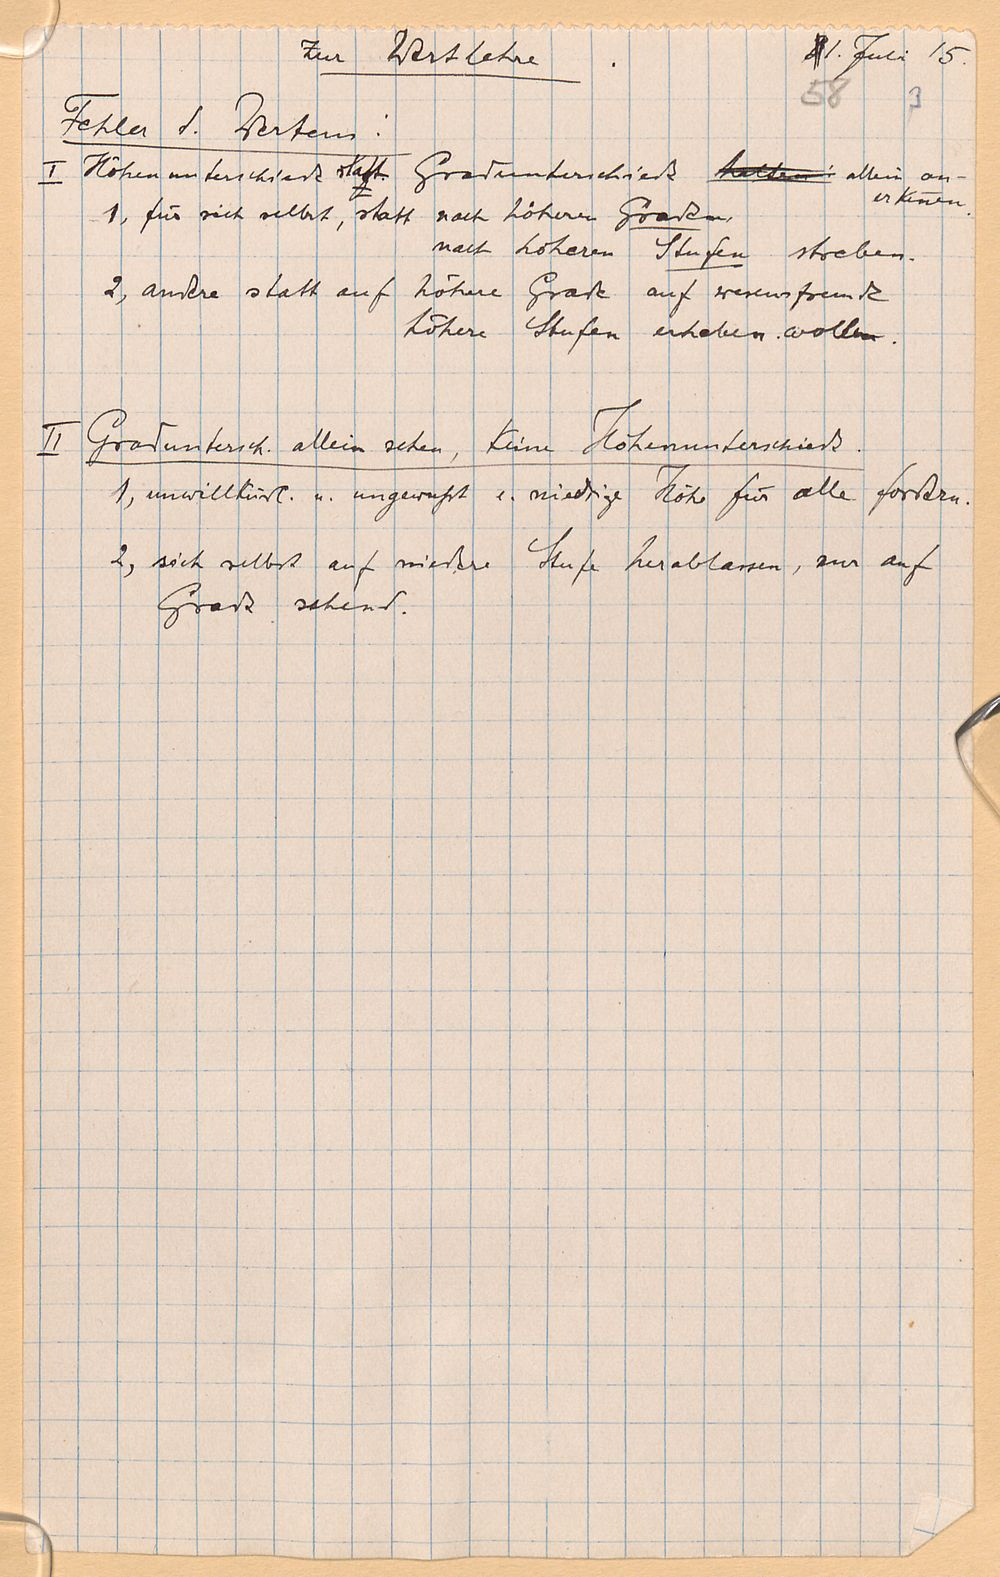 Zur Wertlehre. 21. Juli 15.
58 3
Fehler d. Wertens:
I Höhenunterschiede statt Gradunterschiede halten: allein an-
erkennen.
1, für sich selbst, statt nach höheren Graden,
nach höheren Stufen streben.
2, andere statt auf höhere Grade auf wesensfremde
höhere Stufen erheben wollen.
II Graduntersch. allein sehen, keine Höhenunterschiede.
1, unwillkürl. u. ungewußt e. niedrige Höhe für alle fordern.
2, sich selbst auf niedere Stufe herablassen, nur auf
Grade sehend.